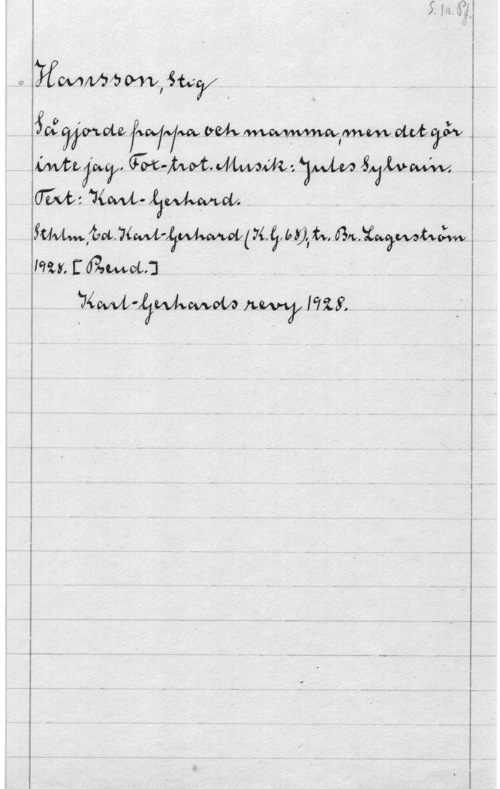 S. 1r. Pf.
Hansson, Stig
Så gjorde pappa och mamma, men det gör
inte jag. Fox-trot. Musik: Jules Sylvain.
Text: Karl-Gerhard.
Sthlm, Ed. Karl-Gerhard (K.G. 68), tr. Br. Lagerström
1928. [Pseud.]
Karl-Gerhards revy 1928.